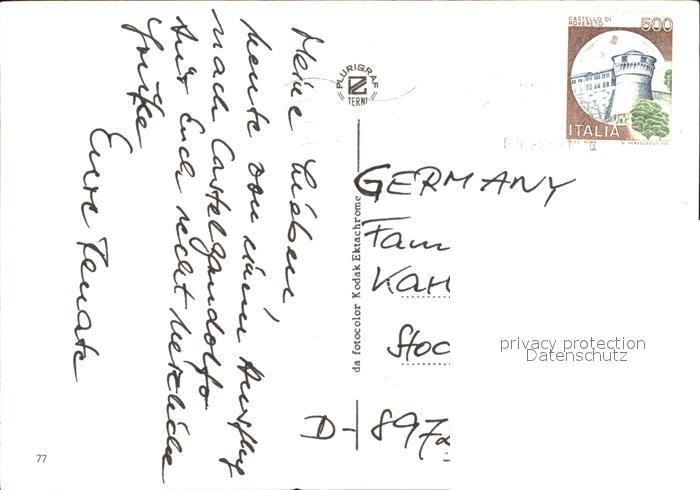 Meine Lieben,
heute von einem Ausflug
nach Castelgandolfo
Euch recht herzliche
Grüße
Eure Renate
PLURIGRAF
TERNI
da fotocolor Kodak Ektachrome
CASTELLO DI
ROVERETO
500
ITALIA
GERMANY
Fam
KAH
Stoc
D-897
privacy protection
Datenschutz
77